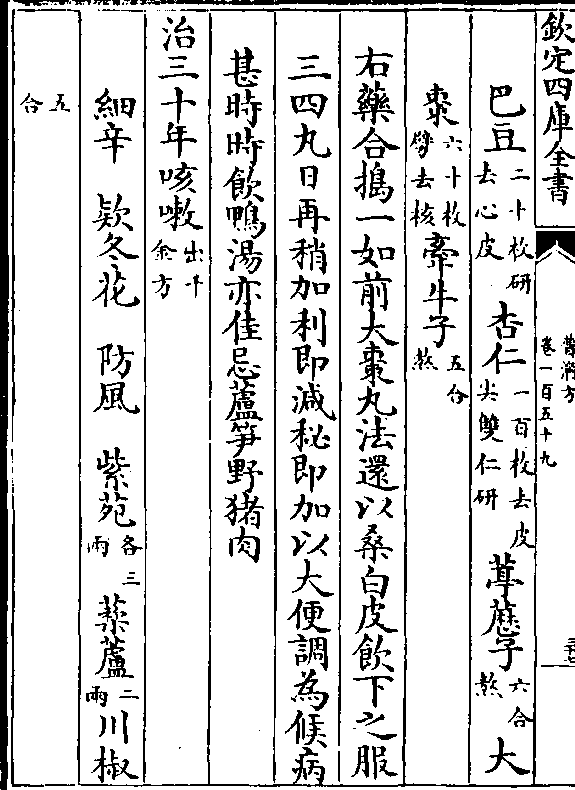 欽定四庫全書
普濟方
卷一百五十九
巴豆二十枚研去心皮 杏仁一百枚去皮尖雙仁研 葶藶子六合熬 大
棗六十枚擘去核 牽牛子五合熬
右藥合搗一如前大棗丸法還以桑白皮飲下之服
三四丸日再稍加利即減秘即加以大便調為候病
甚時時飲鴨湯亦佳忌蘆笋野猪肉
治三十年咳嗽出千金方
細辛 款冬花 防風 紫苑各三兩 藜蘆二兩 川椒
五合